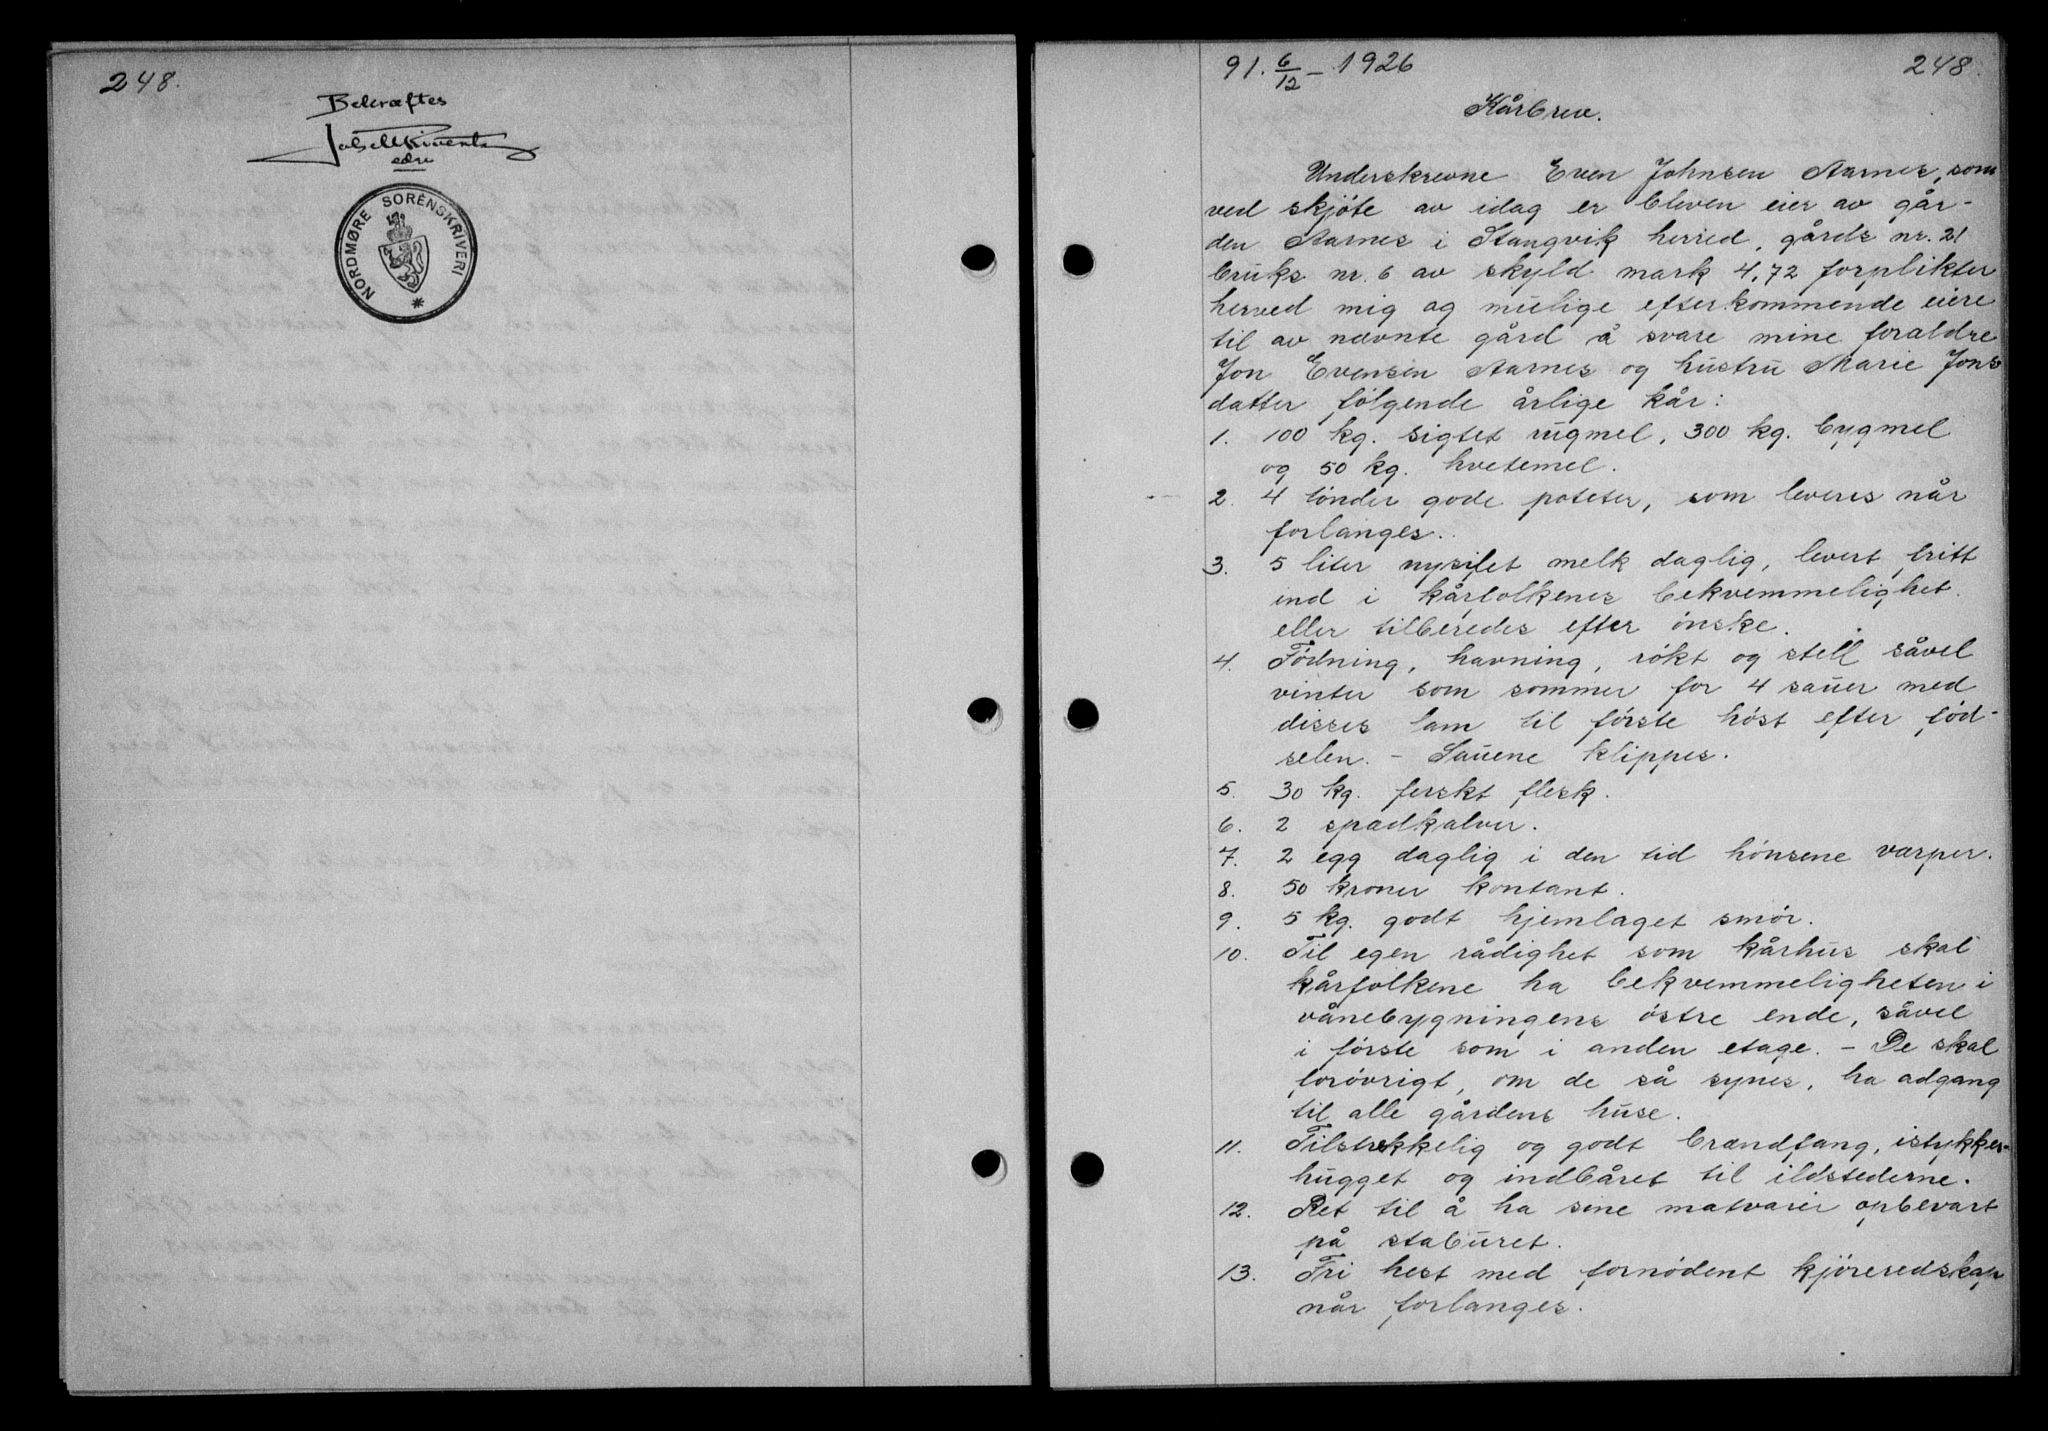 248.
Bekræftes
edsv
NORDMØRE SORENSKRIVERI
91. 6/12 - 1926
248.
Kårbrev.
Underskrevne Even Johnsen Aarnes, som
ved skjöte av idag er bleven eier av går-
den Aarnes i Stangvik herred, gårds nr. 21
bruks nr. 6 av skyld mark 4,72 forplikter
herved mig og mulige efterkommende eiere
til av nævnte gård å svare mine forældre
Jon Evensen Aarnes og hustru Marie Jons
datter fölgende årlige kår:
1. 100 kg. sigtet rugmel, 300 kg. bygmel
og 50 kg. hvetemel.
2. 4 tönder gode poteter, som leveres når
forlanges.
3. 5 liter nysilet melk daglig, levert fritt
ind i kårfolkenes bekvemmelighet
eller tilberedes efter önske.
4. Födning, havning, rökt og stell såvel
vinter som sommer for 4 sauer med
disses lam til förste höst efter föd-
selen. - Sauene klippes.
5. 30 kg. ferskt flesk.
6. 2 spædkalver.
7. 2 egg daglig i den tid hönsene værper.
8. 50 kroner kontant.
9. 5 kg. godt hjemlaget smör.
10. Til egen rådighet som kårhus skal
kårfolkene ha bekvemmeligheten i
vånebygningens östre ende, såvel
i förste som i anden etage. - De skal
forövrigt, om de så synes, ha adgang
til alle gårdens huse.
11. Tilstrekkelig og godt brændfang, istykker-
hugget og indbåret til ildstederne.
12. Ret til å ha sine matvarer opbevart
på staburet.
13. Fri hest med fornödent kjöreredskap
når forlanges.